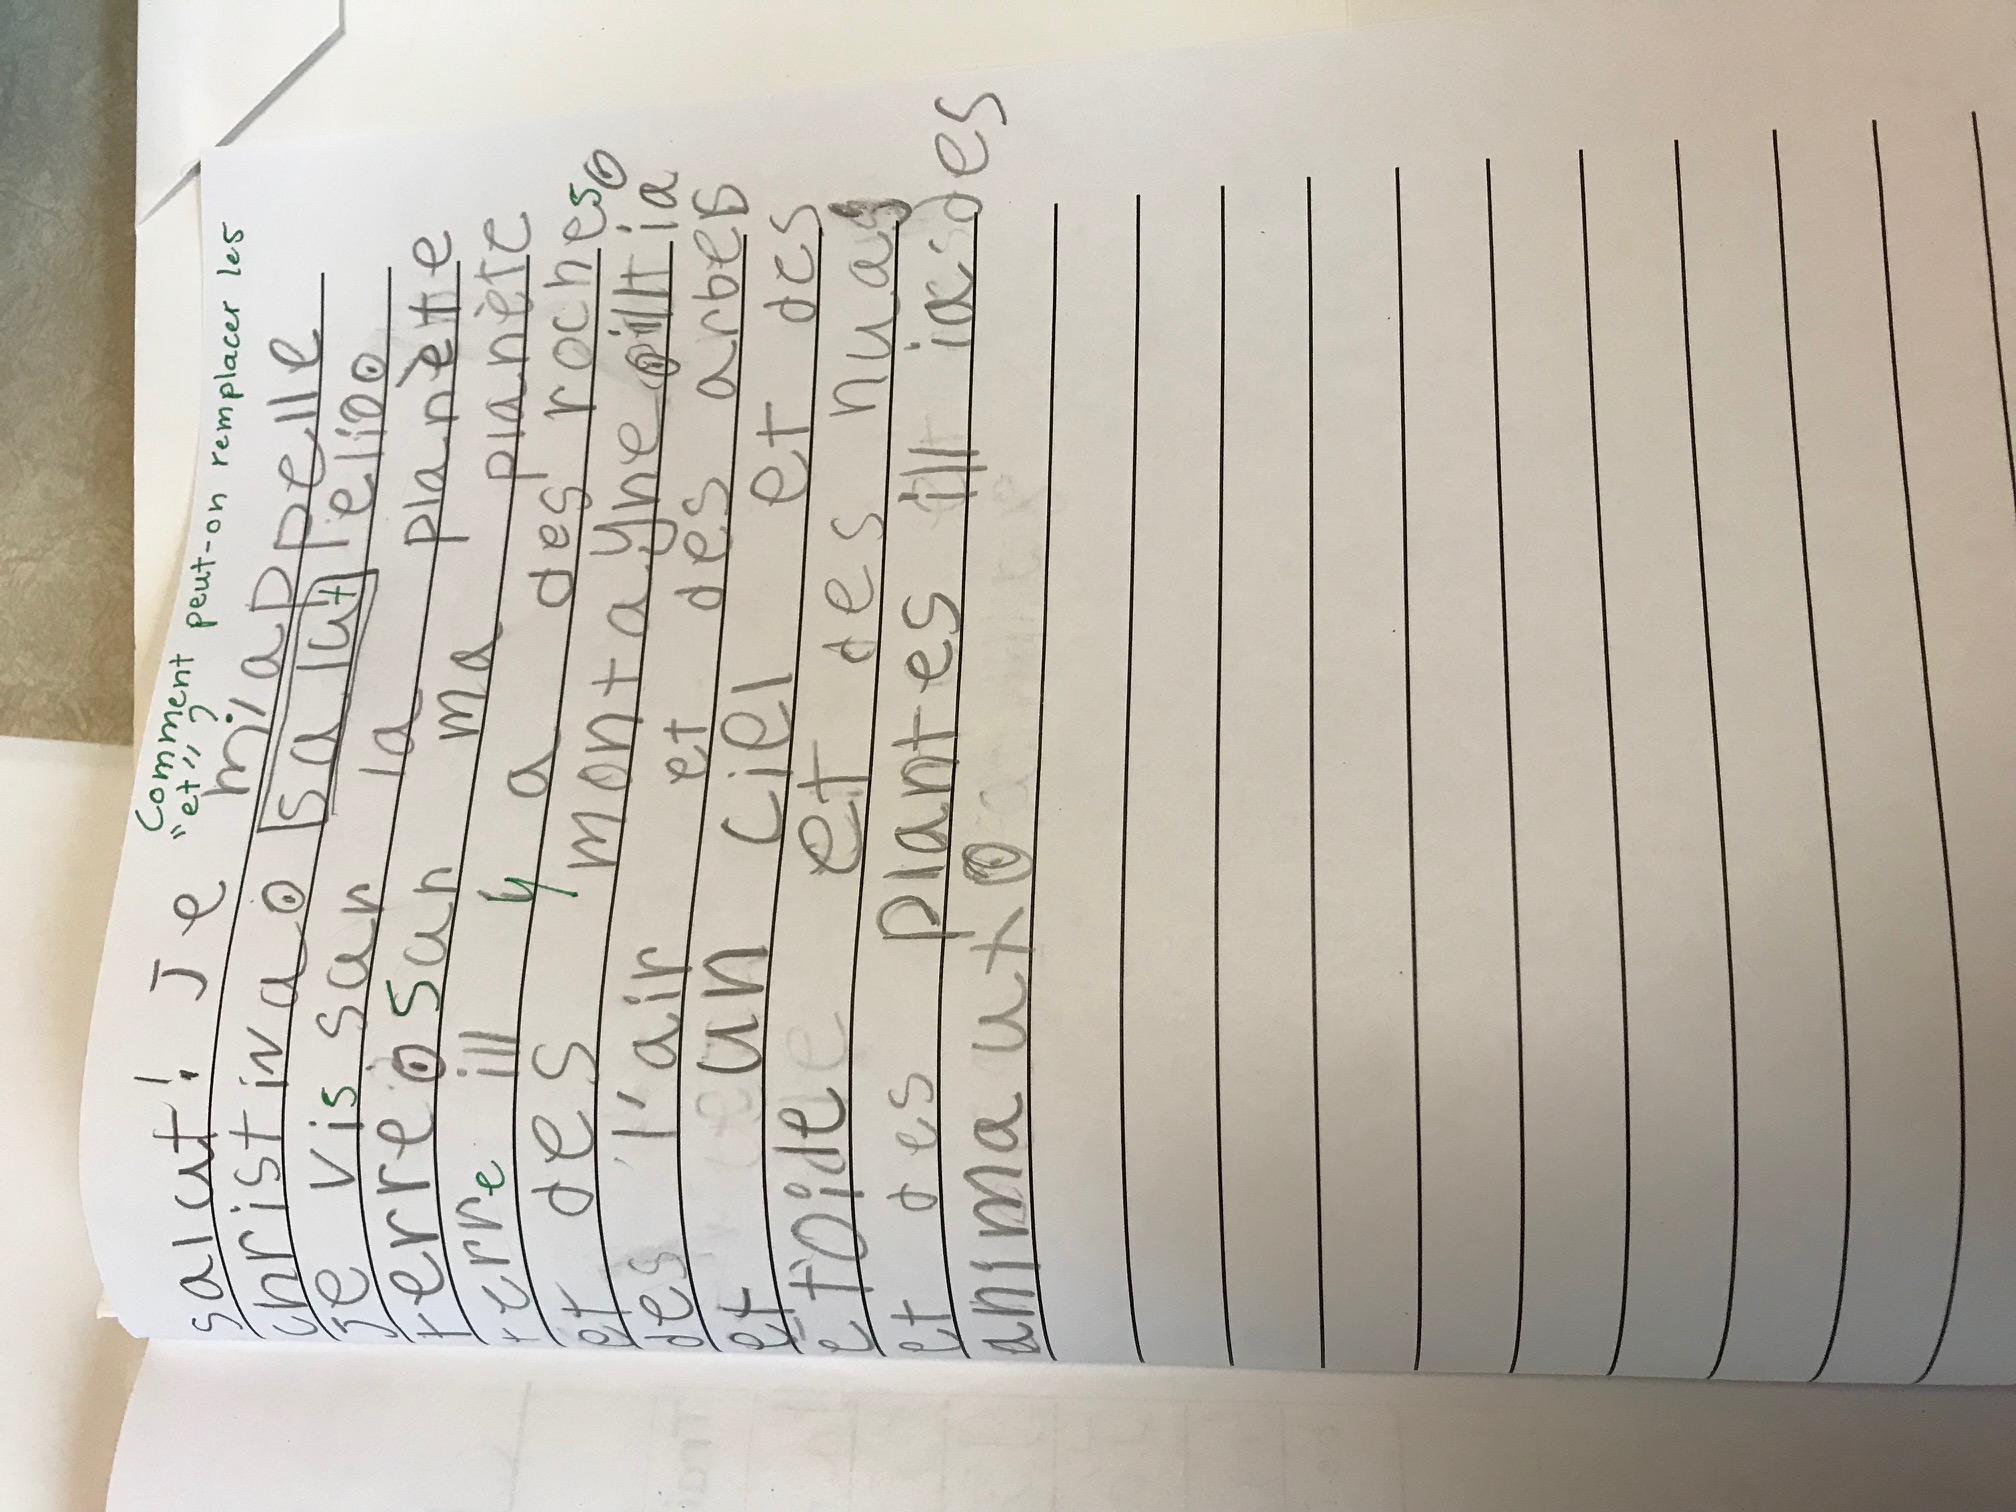 Comment peut-on remplacer les
"et"?
salut! Je m'appelle
christina. salut
je vis sur la pelido
terre. Sur la planète
terre ill y a ma planète
et des a des roches.
des montagne ill ia
et l'air et des arbes
et un ciel et des
étoile et des nuag
et des plantes ill ia des
animaux.